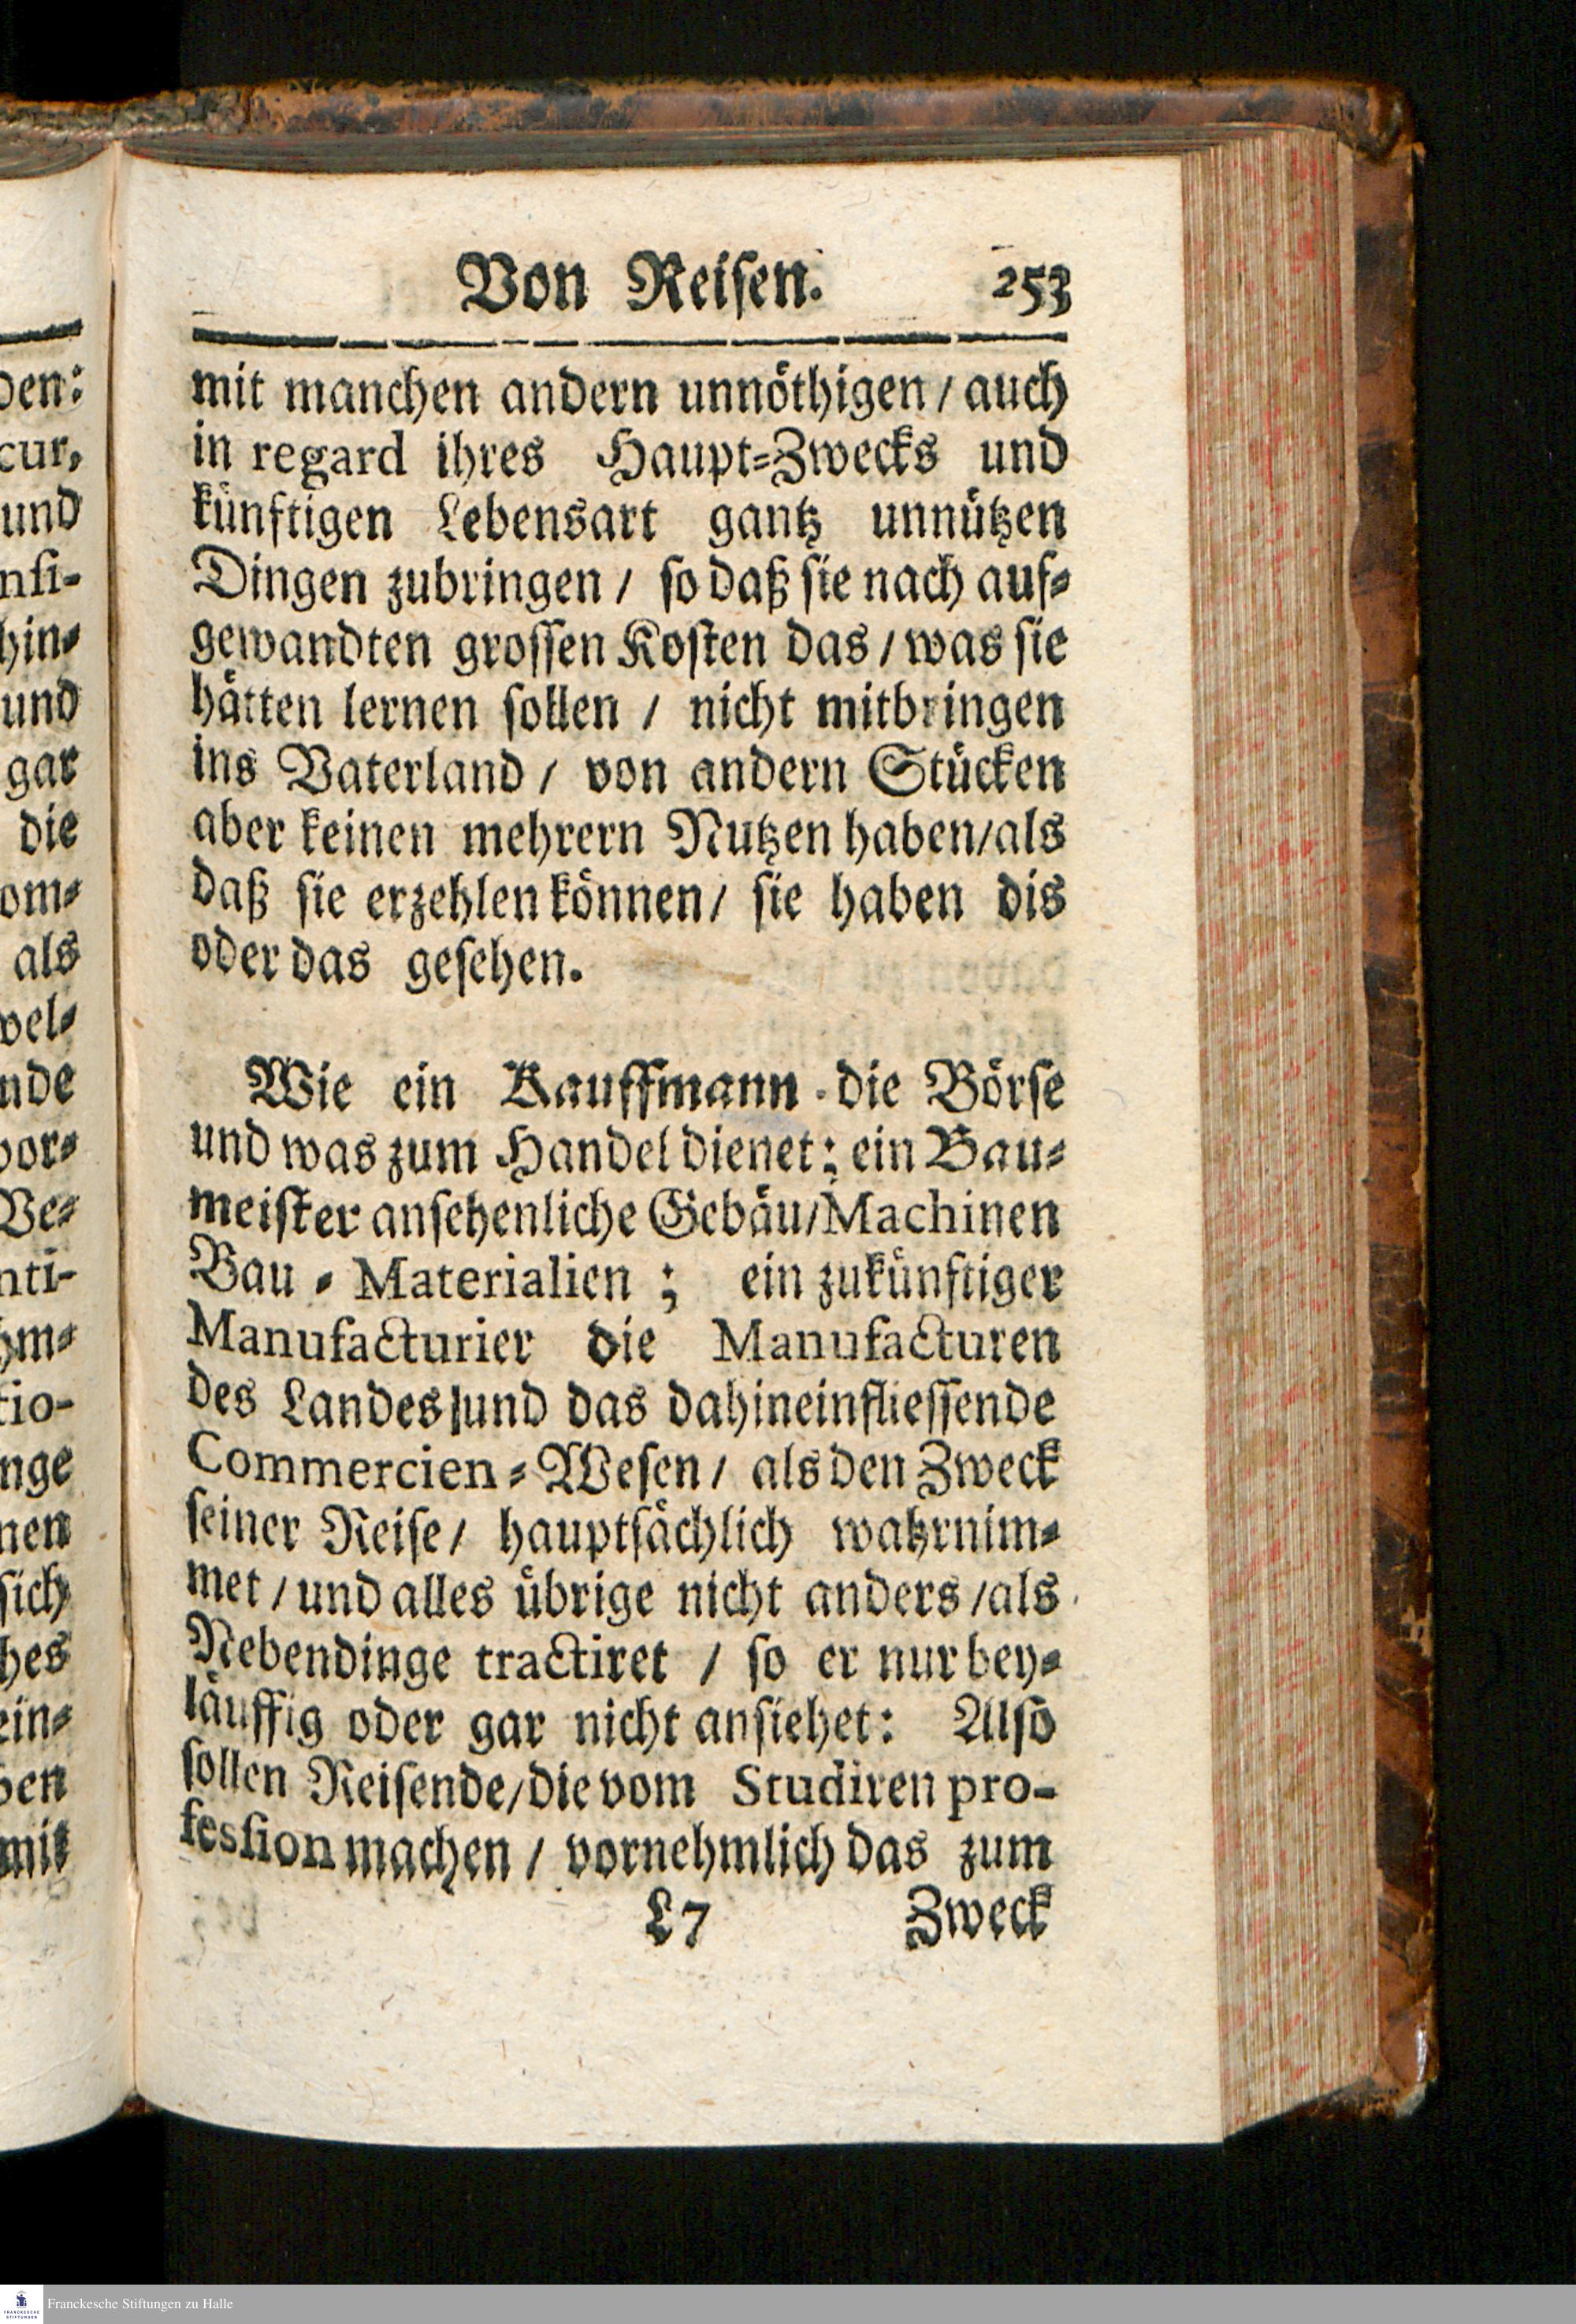 Von Reisen. 253
mit manchen andern unnöthigen / auch
in regard ihres Haupt-Zwecks und
künftigen Lebensart gantz unnützen
Dingen zubringen / so daß sie nach auf-
gewandten grossen Kosten das / was sie
hätten lernen sollen / nicht mitbringen
ins Vaterland / von andern Stücken
aber keinen mehrern Nutzen haben / als
daß sie erzehlen können / sie haben dis
oder das gesehen.
Wie ein Kauffmann die Börse
und was zum Handel dienet; ein Bau-
meister ansehenliche Gebäu / Machinen
Bau-Materialien; ein zukünftiger
Manufacturier die Manufacturen
des Landes / und das dahineinfliessende
Commercien-Wesen / als den Zweck
seiner Reise / hauptsächlich wahrnim-
met / und alles übrige nicht anders / als
Nebendinge tractiret / so er nur bey-
läuffig oder gar nicht ansiehet: Also
sollen Reisende / die vom Studiren pro-
fession machen / vornehmlich das zum
L 7 Zweck
den:
cur,
und
nsi-
hin-
und
gar
die
om-
als
wel-
nde
vor-
Ve-
nti-
hm-
tio-
nge
nen
sich
hes
ein-
ben
mit
FRANCKESCHE STIFTUNGEN
Franckesche Stiftungen zu Halle